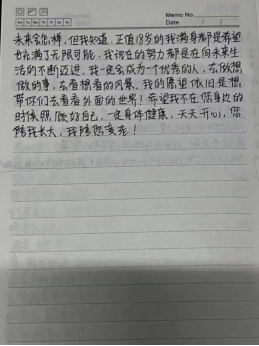 Memo No.
Mo Tu We Th Fr Sa Su
Date / /
未来会怎样，但我知道，正值18岁的我满身都是希望
也充满了无限可能，我现在的努力都是在向未来生
活的不断迈进，我一定会成为一个优秀的人，去做想
做的事，去看想看的风景，我的愿望依旧是想
带你们去看看外面的世界！希望我不在您身边的
时候照顾好自己，一定身体健康，天天开心，您
陪我长大，我陪您变老！